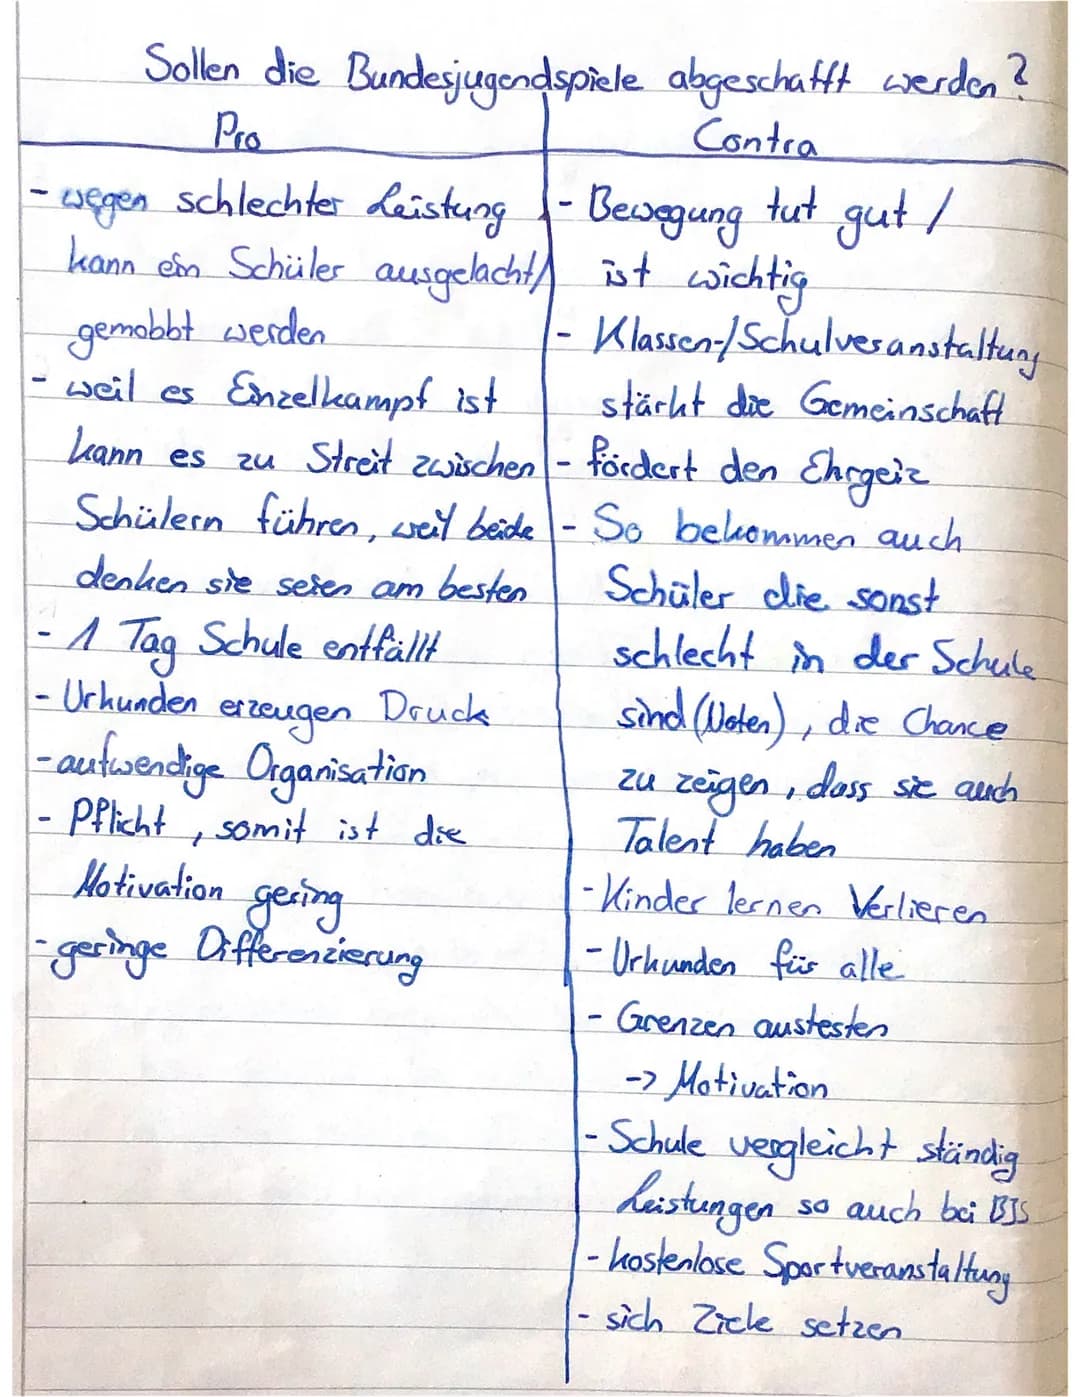 Sollen die Bundesjugendspiele abgeschafft werden?
Pro
- wegen schlechter Leistung
kann ein Schüler ausgelacht/
gemobbt werden
- weil es Einzelkampf ist
kann es zu Streit zwischen
Schülern führen, weil beide
denken sie seien am besten
- 1 Tag Schule entfällt
- Urkunden erzeugen Druck
- aufwendige Organisation
- Pflicht, somit ist die
Motivation gering
- geringe Differenzierung
Contra
- Bewegung tut gut /
ist wichtig
- Klassen-/Schulveranstaltung
stärkt die Gemeinschaft
- fördert den Ehrgeiz
- So bekommen auch
Schüler die sonst
schlecht in der Schule
sind (Noten), die Chance
zu zeigen, dass sie auch
Talent haben
- Kinder lernen Verlieren
- Urkunden für alle
- Grenzen austesten
-> Motivation
- Schule vergleicht ständig
Leistungen so auch bei BJS
- kostenlose Sportveranstaltung
- sich Ziele setzen